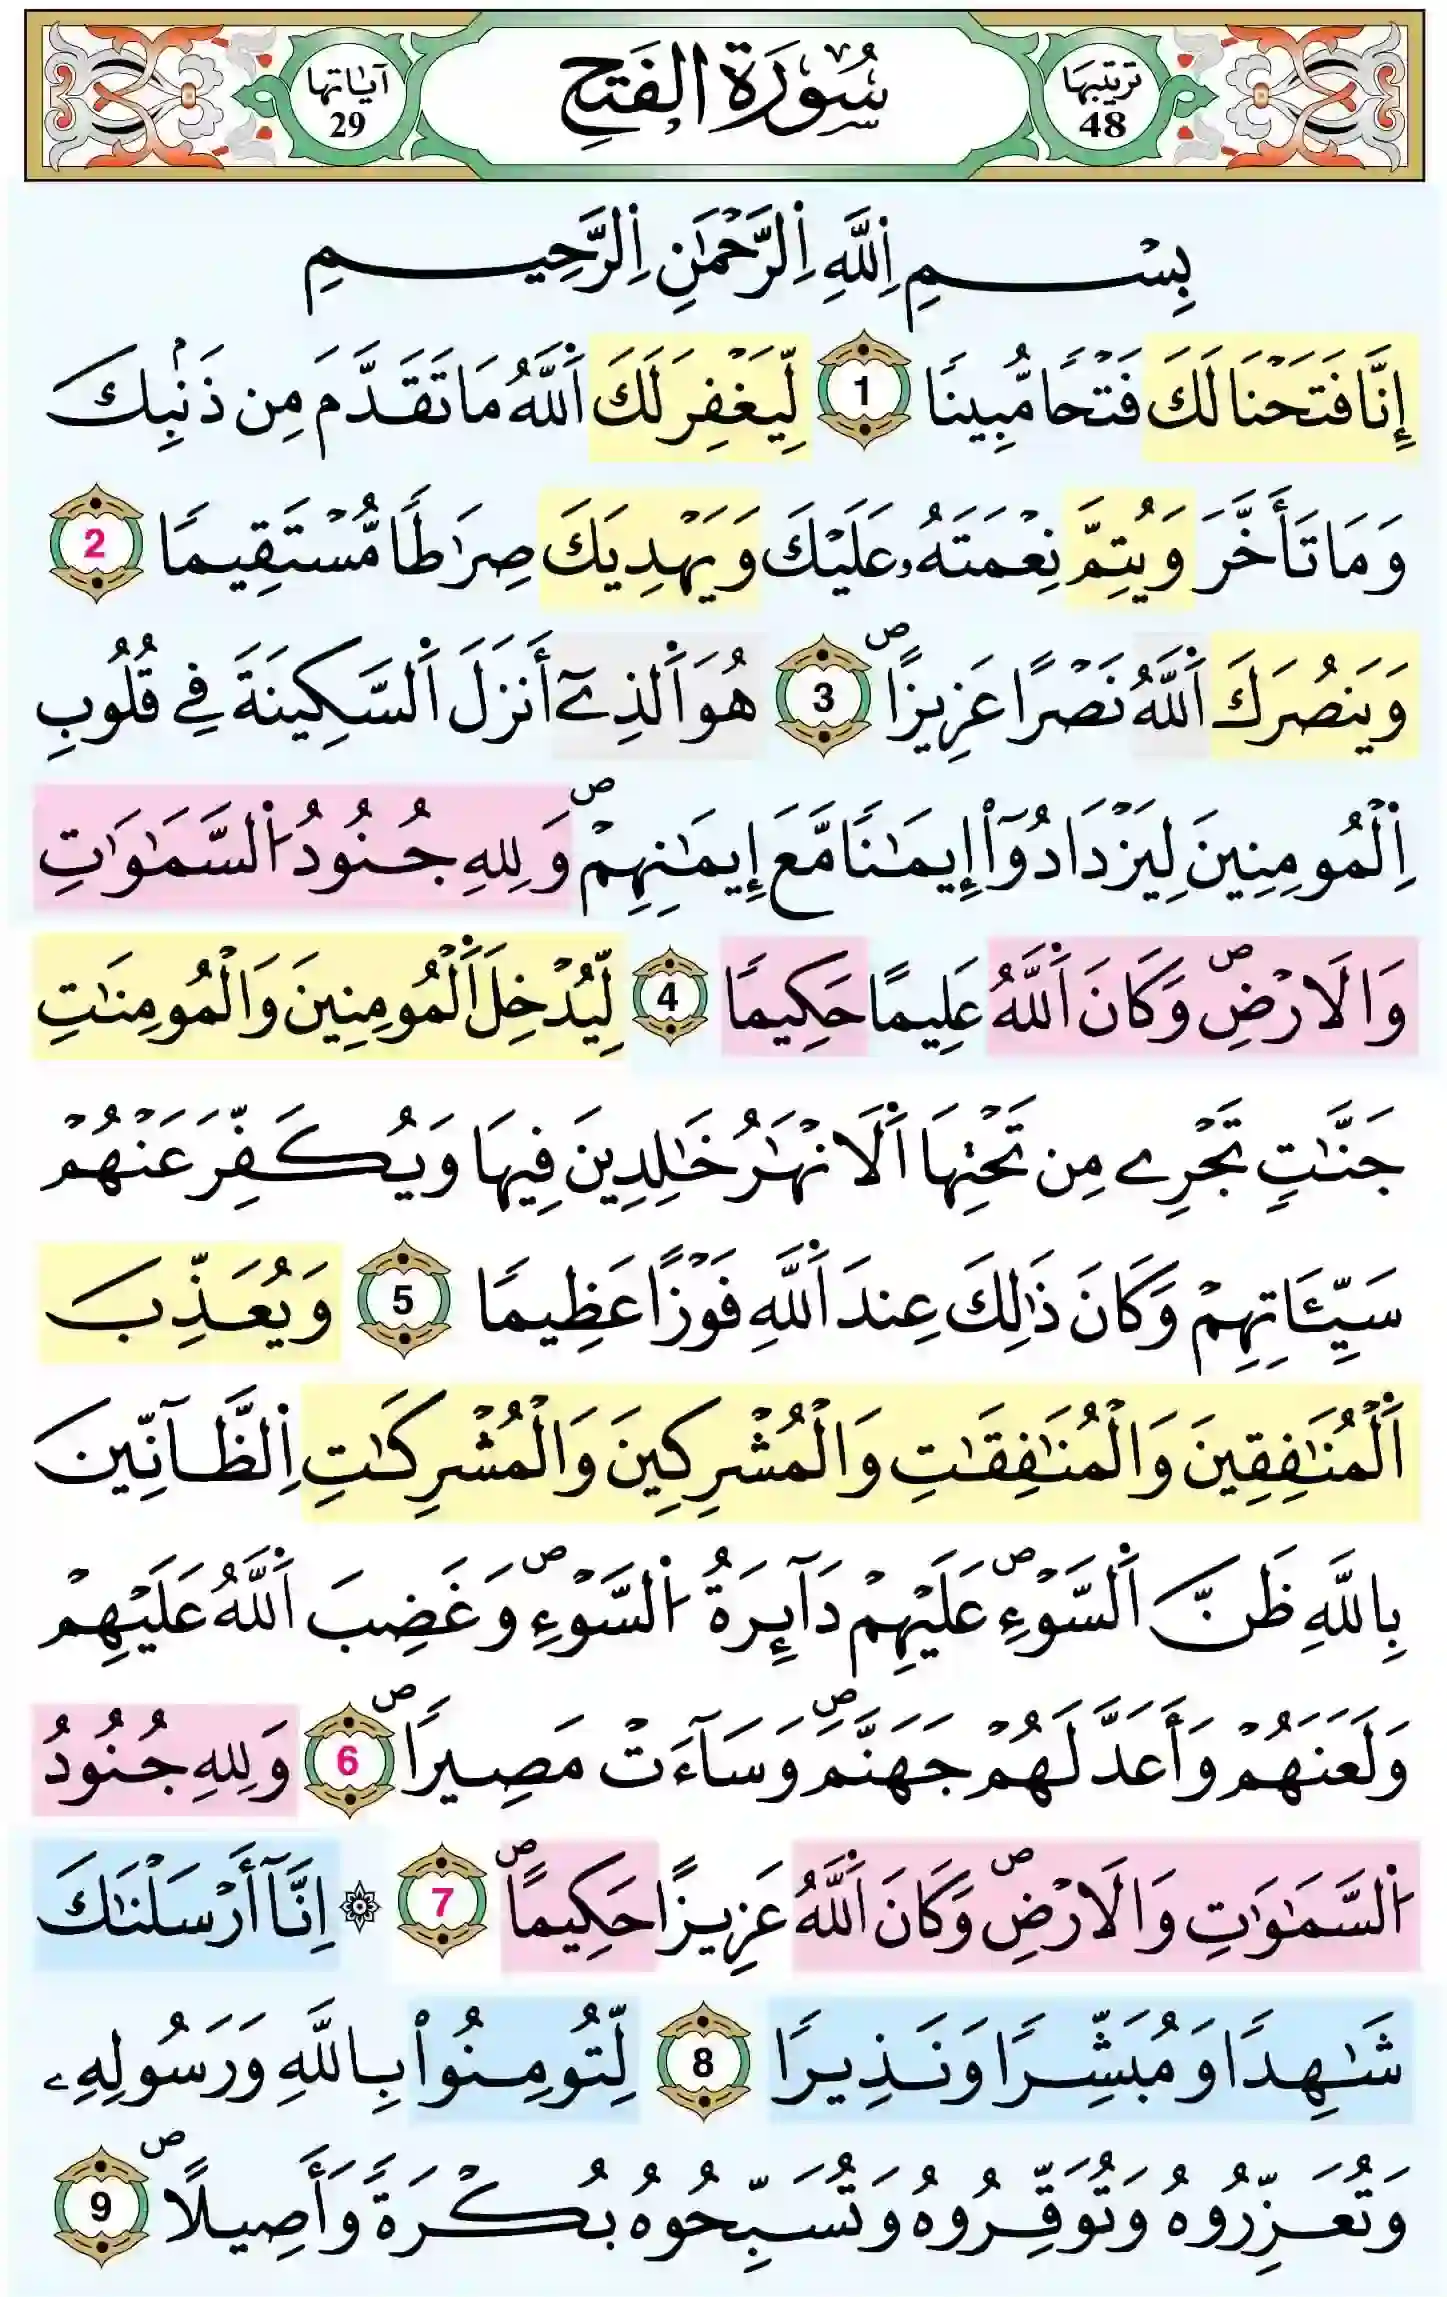 ترتيبها 48
سُورَةُ الفَتْحِ
آيَاتها 29
بِسْمِ اِ۬للَّهِ اِ۬لرَّحْمَٰنِ اِ۬لرَّحِيمِ
إِنَّا فَتَحْنَا لَكَ فَتْحًا مُّبِينًا 1 لِّيَغْفِرَ لَكَ اَ۬للَّهُ مَا تَقَدَّمَ مِن ذَنۢبِكَ
وَمَا تَأَخَّرَ وَيُتِمَّ نِعْمَتَهُۥ عَلَيْكَ وَيَهْدِيَكَ صِرَٰطًا مُّسْتَقِيمًا 2
وَيَنصُرَكَ اَ۬للَّهُ نَصْرًا عَزِيزًاۖ 3 هُوَ اَ۬لذِےٓ أَنزَلَ اَ۬لسَّكِينَةَ فِے قُلُوبِ
اِ۬لْمُومِنِينَ لِيَزْدَادُوٓاْ إِيمَٰنًا مَّعَ إِيمَٰنِهِمْۖ وَلِلهِ جُنُودُ اُ۬لسَّمَٰوَٰتِ
وَالَارْضِۖ وَكَانَ اَ۬للَّهُ عَلِيمًا حَكِيمًا 4 لِّيُدْخِلَ اَ۬لْمُومِنِينَ وَالْمُومِنَٰتِ
جَنَّٰتٍ تَجْرِے مِن تَحْتِهَا اَ۬لَانْهَٰرُ خَٰلِدِينَ فِيهَا وَيُكَفِّرَ عَنْهُمْ
سَيِّـَٔاتِهِمْ وَكَانَ ذَٰلِكَ عِندَ اَ۬للَّهِ فَوْزًا عَظِيمًا 5 وَيُعَذِّبَ
اَ۬لْمُنَٰفِقِينَ وَالْمُنَٰفِقَٰتِ وَالْمُشْرِكِينَ وَالْمُشْرِكَٰتِ اِ۬لظَّآنِّينَ
بِاللَّهِ ظَنَّ اَ۬لسَّوْءِۖ عَلَيْهِمْ دَآئِرَةُ اُ۬لسَّوْءِۖ وَغَضِبَ اَ۬للَّهُ عَلَيْهِمْ
وَلَعَنَهُمْ وَأَعَدَّ لَهُمْ جَهَنَّمَۖ وَسَآءَتْ مَصِيرًاۖ 6 وَلِلهِ جُنُودُ
اُ۬لسَّمَٰوَٰتِ وَالَارْضِۖ وَكَانَ اَ۬للَّهُ عَزِيزًا حَكِيمًاۖ 7 ۞ اِنَّآ أَرْسَلْنَٰكَ
شَٰهِدًا وَمُبَشِّرًا وَنَذِيرًا 8 لِّتُومِنُواْ بِاللَّهِ وَرَسُولِهِۦ
وَتُعَزِّرُوهُ وَتُوَقِّرُوهُ وَتُسَبِّحُوهُ بُكْرَةً وَأَصِيلًاۖ 9